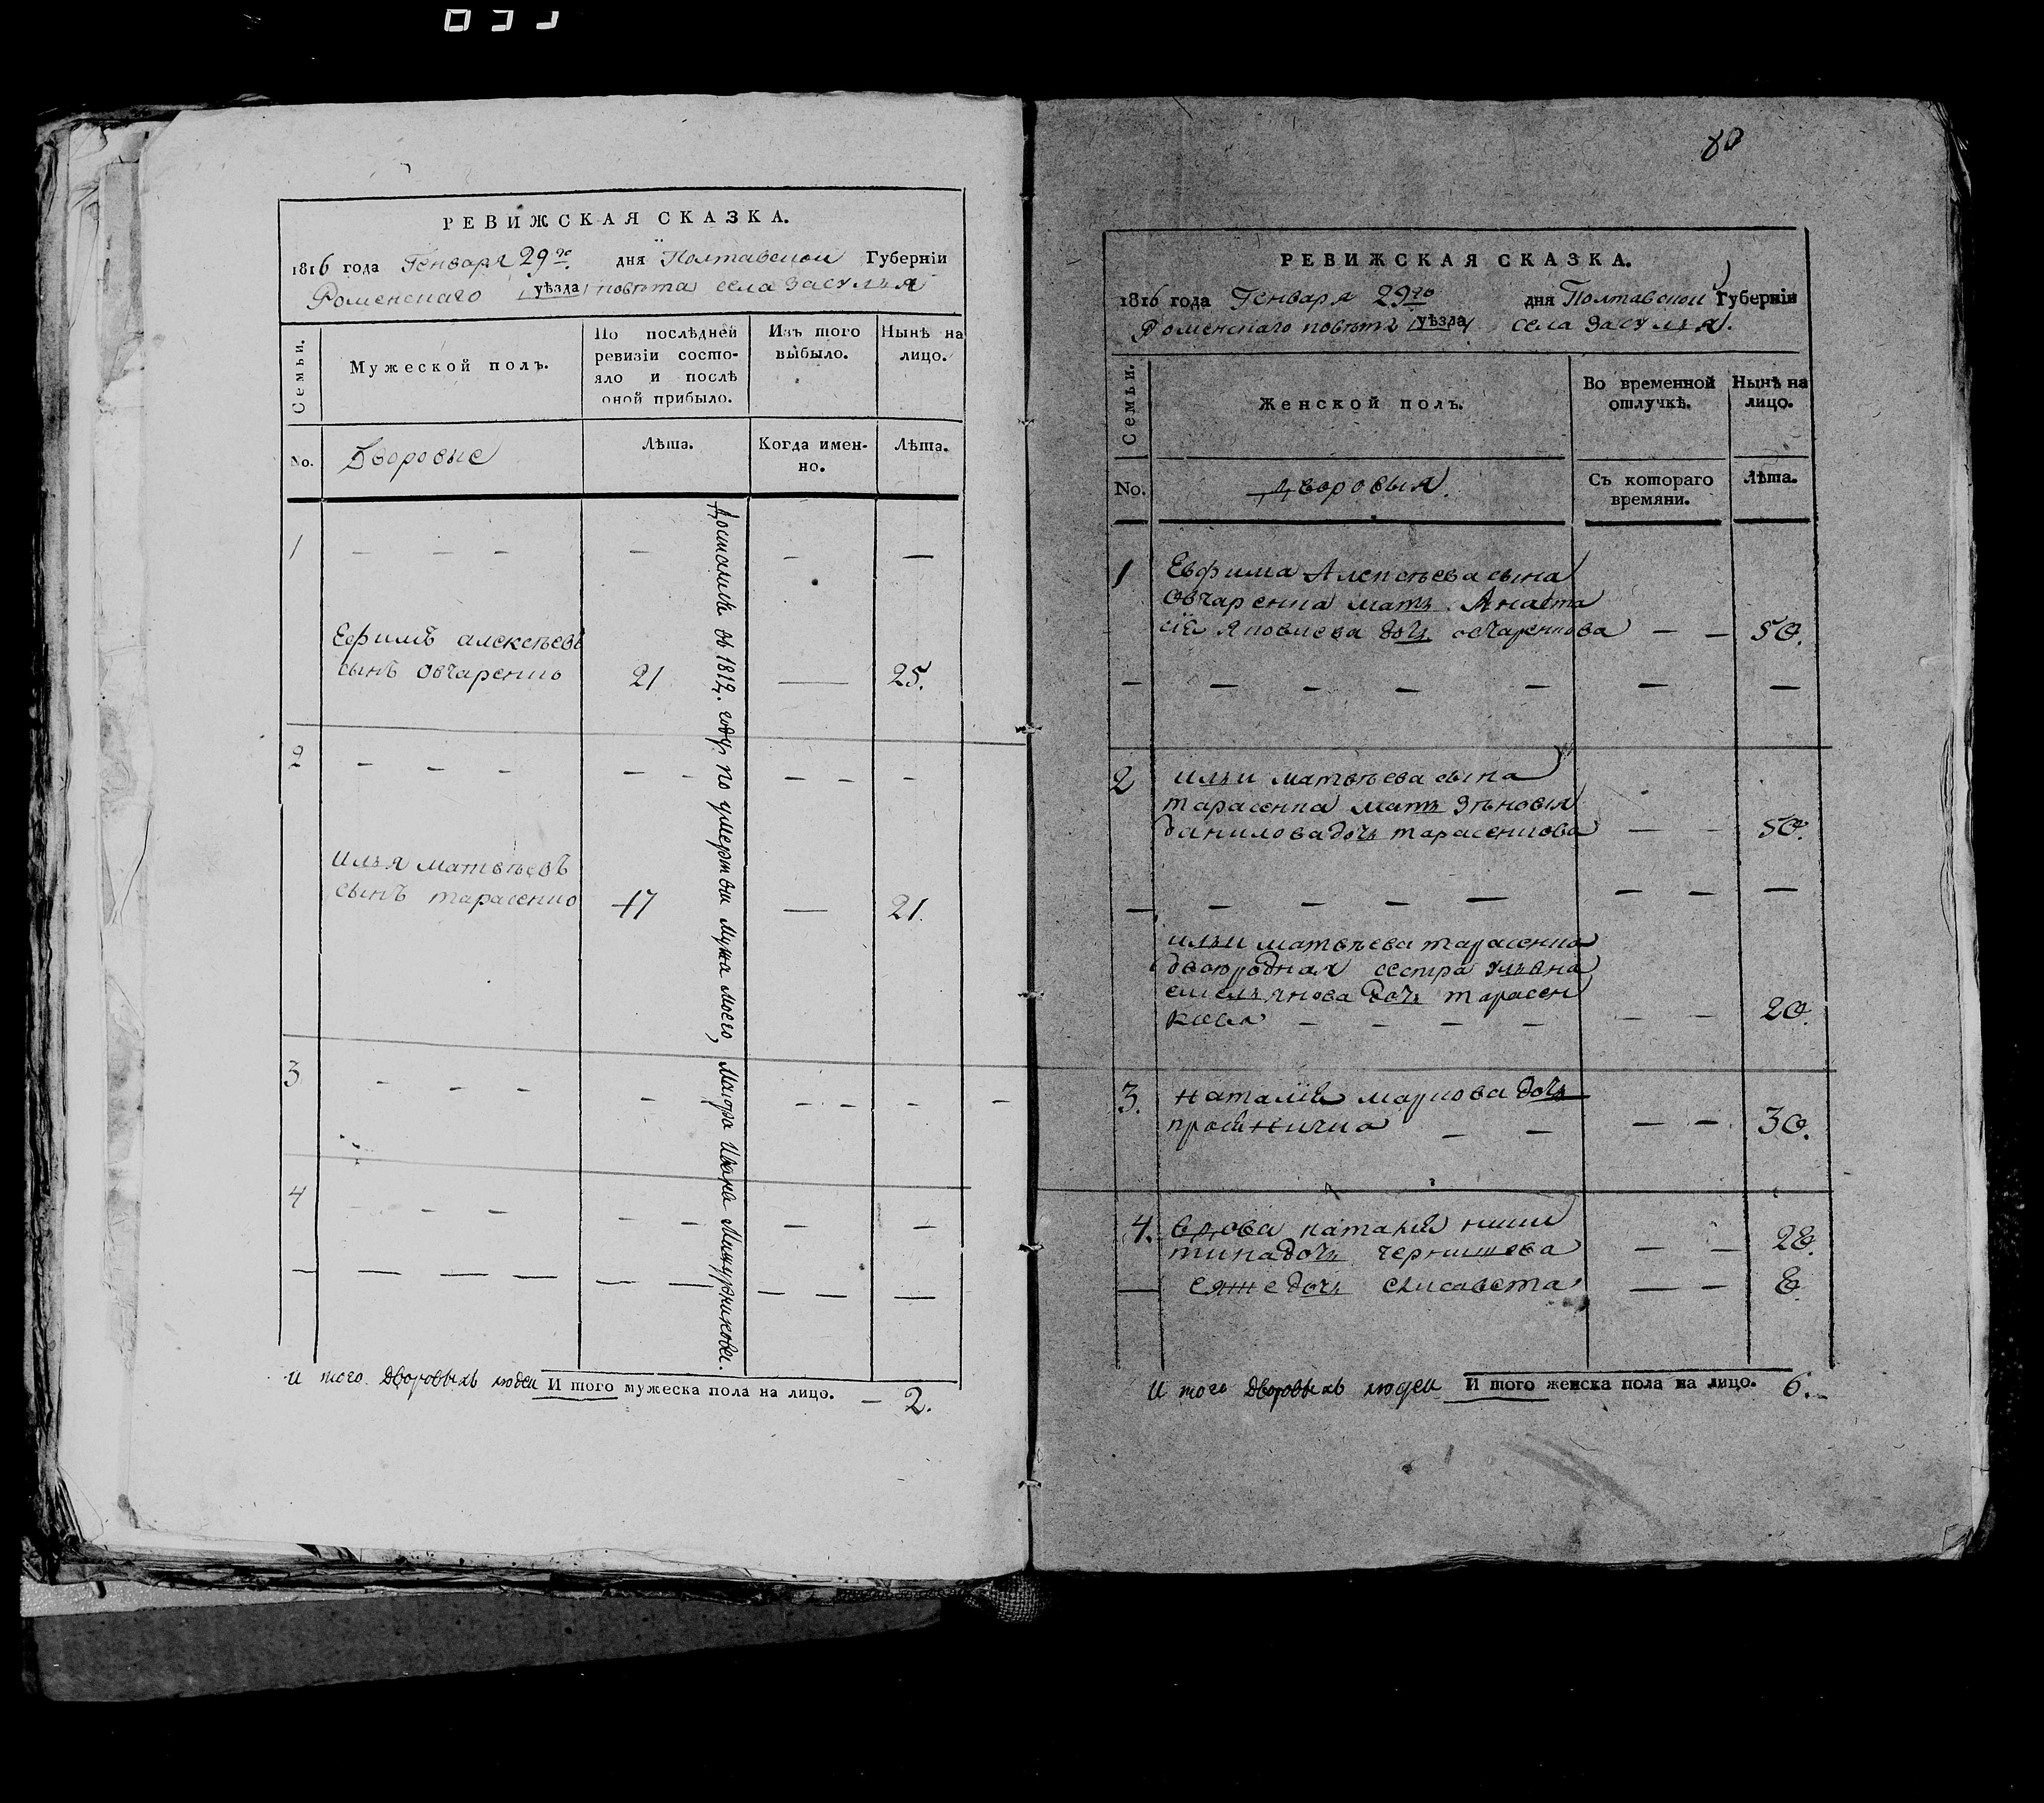 РЕВИЖСКАЯ СКАЗКА.
1816 года Генваря 29го дня Полтавской Губерніи
Роменскаго уѣзда повѣта села Засулья
Семьи.
Мужеской полъ.
По послѣдней
ревизіи состо-
яло и послѣ
оной прибыло.
Изъ того
выбыло.
Нынѣ на
лицо.
No.
Дворовые
Лѣта.
Когда имен-
но.
Лѣта.
1
Ефимъ алексѣевъ
сынъ Овчаренко 21 25.
2
Илья матвѣевъ
сынъ тарасенко 17 21.
3
4
Достались въ 1812. году. по умертвіи мужа моего, Маіора Ивана
И того дворовыхъ людей И того мужеска пола на лицо. 2.
80
РЕВИЖСКАЯ СКАЗКА.
1816 года Генваря 29го дня Полтавской Губерніи
Роменскаго повѣта уѣзда села Засулья.
Семьи.
Женской полъ.
Во временной
отлучкѣ.
Нынѣ на
лицо.
No.
Дворовыя.
Съ котораго
времяни.
Лѣта.
1 Евфима Алексѣева сына
Овчаренка мать Анаста
сія Яковлева дочь овчаренкова 50.
2 ильи матвѣева сына
тарасенка мать Зѣновія
данилова дочь тарасенкова 50.
ильи матвѣева тарасенка
двоюродная сестра ульяна
емельянова дочь тарасен
кова 20.
3. наталія маркова дочь
30.
4. вдова наталія ники
тина дочь чернишева 28.
ея же дочь елисавета 8.
И того дворовыхъ людей И того женска пола на лицо. 6.